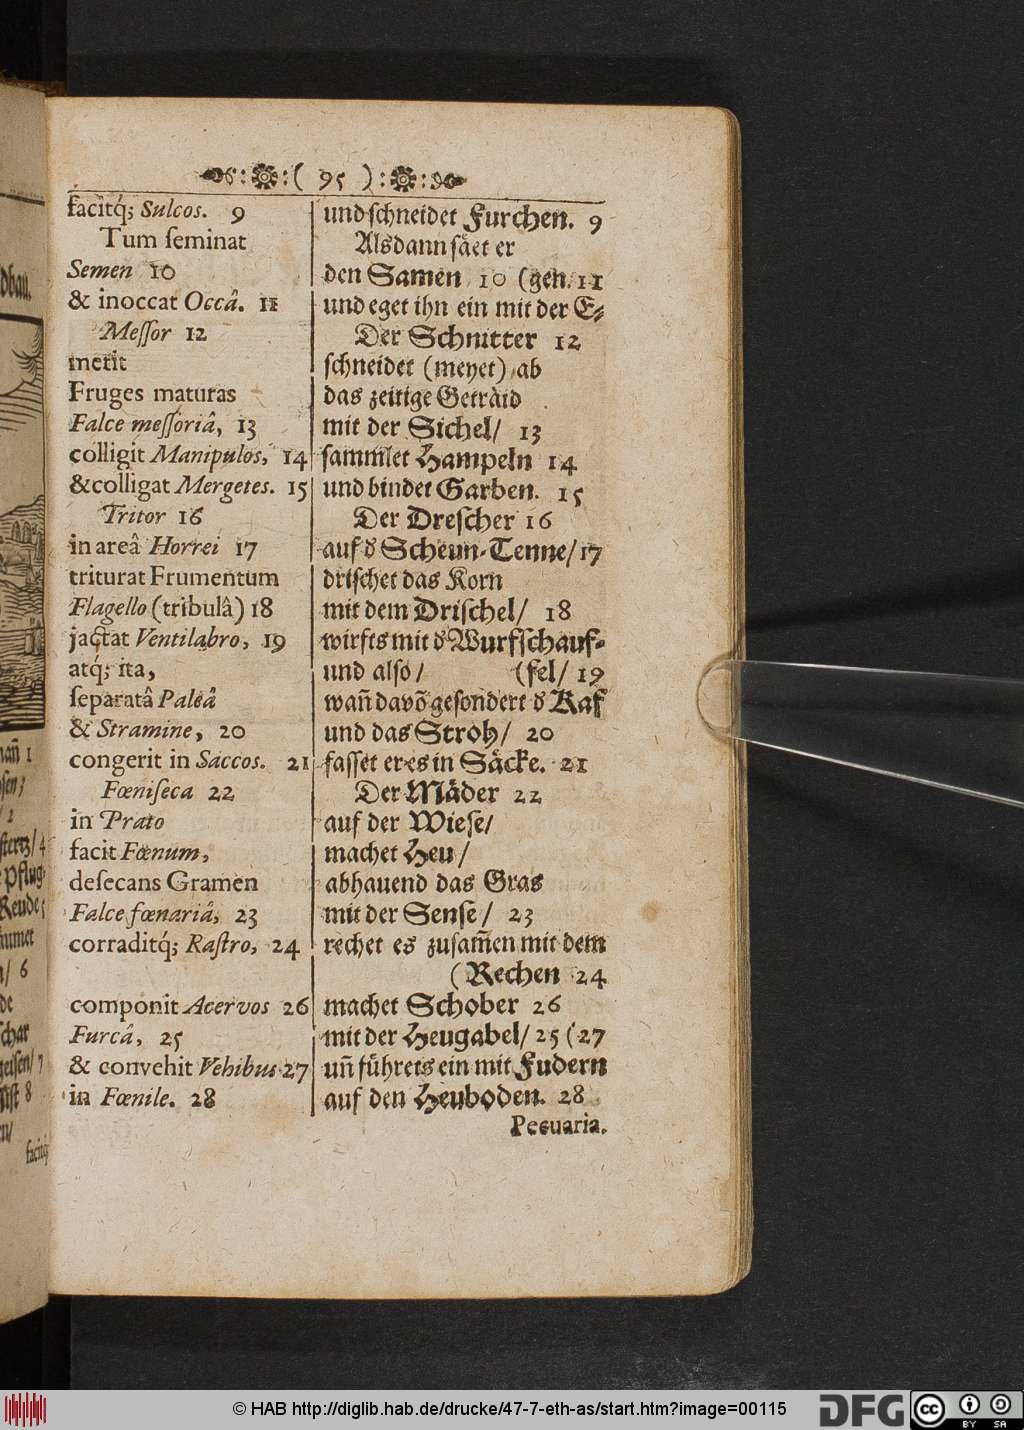 ( 95 )
facitq́; Sulcos. 9
Tum ſeminat
Semen 10
& inoccat Occâ. 11
Meſſor 12
metit
Fruges maturas
Falce meſſoriâ, 13
colligit Manipulos, 14
&colligat Mergetes. 15
Tritor 16
in areâ Horrei 17
triturat Frumentum
Flagello (tribulâ) 18
jactat Ventilabro, 19
atq́; ita,
ſeparatâ Paleâ
& Stramine, 20
congerit in Saccos. 21
Fœniſeca 22
in Prato
facit Fœnum,
deſecans Gramen
Falce fœnariâ, 23
corraditq́; Raſtro, 24
componit Acervos 26
Furcâ, 25
& convehit Vehibus 27
in Fœnile. 28
und ſchneidet Furchen. 9
Alsdann ſäet er
den Samen 10 (gen. 11
und eget ihn ein mit der E⸗
Der Schnitter 12
ſchneidet (meyet) ab
das zeitige Geträid
mit der Sichel/ 13
ſammlet Hampeln 14
und bindet Garben. 15
Der Dreſcher 16
auf d' Scheun-Tenne/ 17
driſchet das Korn
mit dem Driſchel/ 18
wirfts mit d' Wurfſchauf⸗
und alſo/ (fel/ 19
wañ davõ geſondert d' Kaf
und das Stroh/ 20
faſſet er es in Säcke. 21
Der Mäder 22
auf der Wieſe/
machet Heu/
abhauend das Gras
mit der Senſe/ 23
rechet es zuſam̃en mit dem
(Rechen 24
machet Schober 26
mit der Heugabel/ 25 (27
uñ führets ein mit Fudern
auf den Heuboden. 28
Pecuaria.
© HAB http://diglib.hab.de/drucke/47-7-eth-as/start.htm?image=00115
DFG
cc BY SA